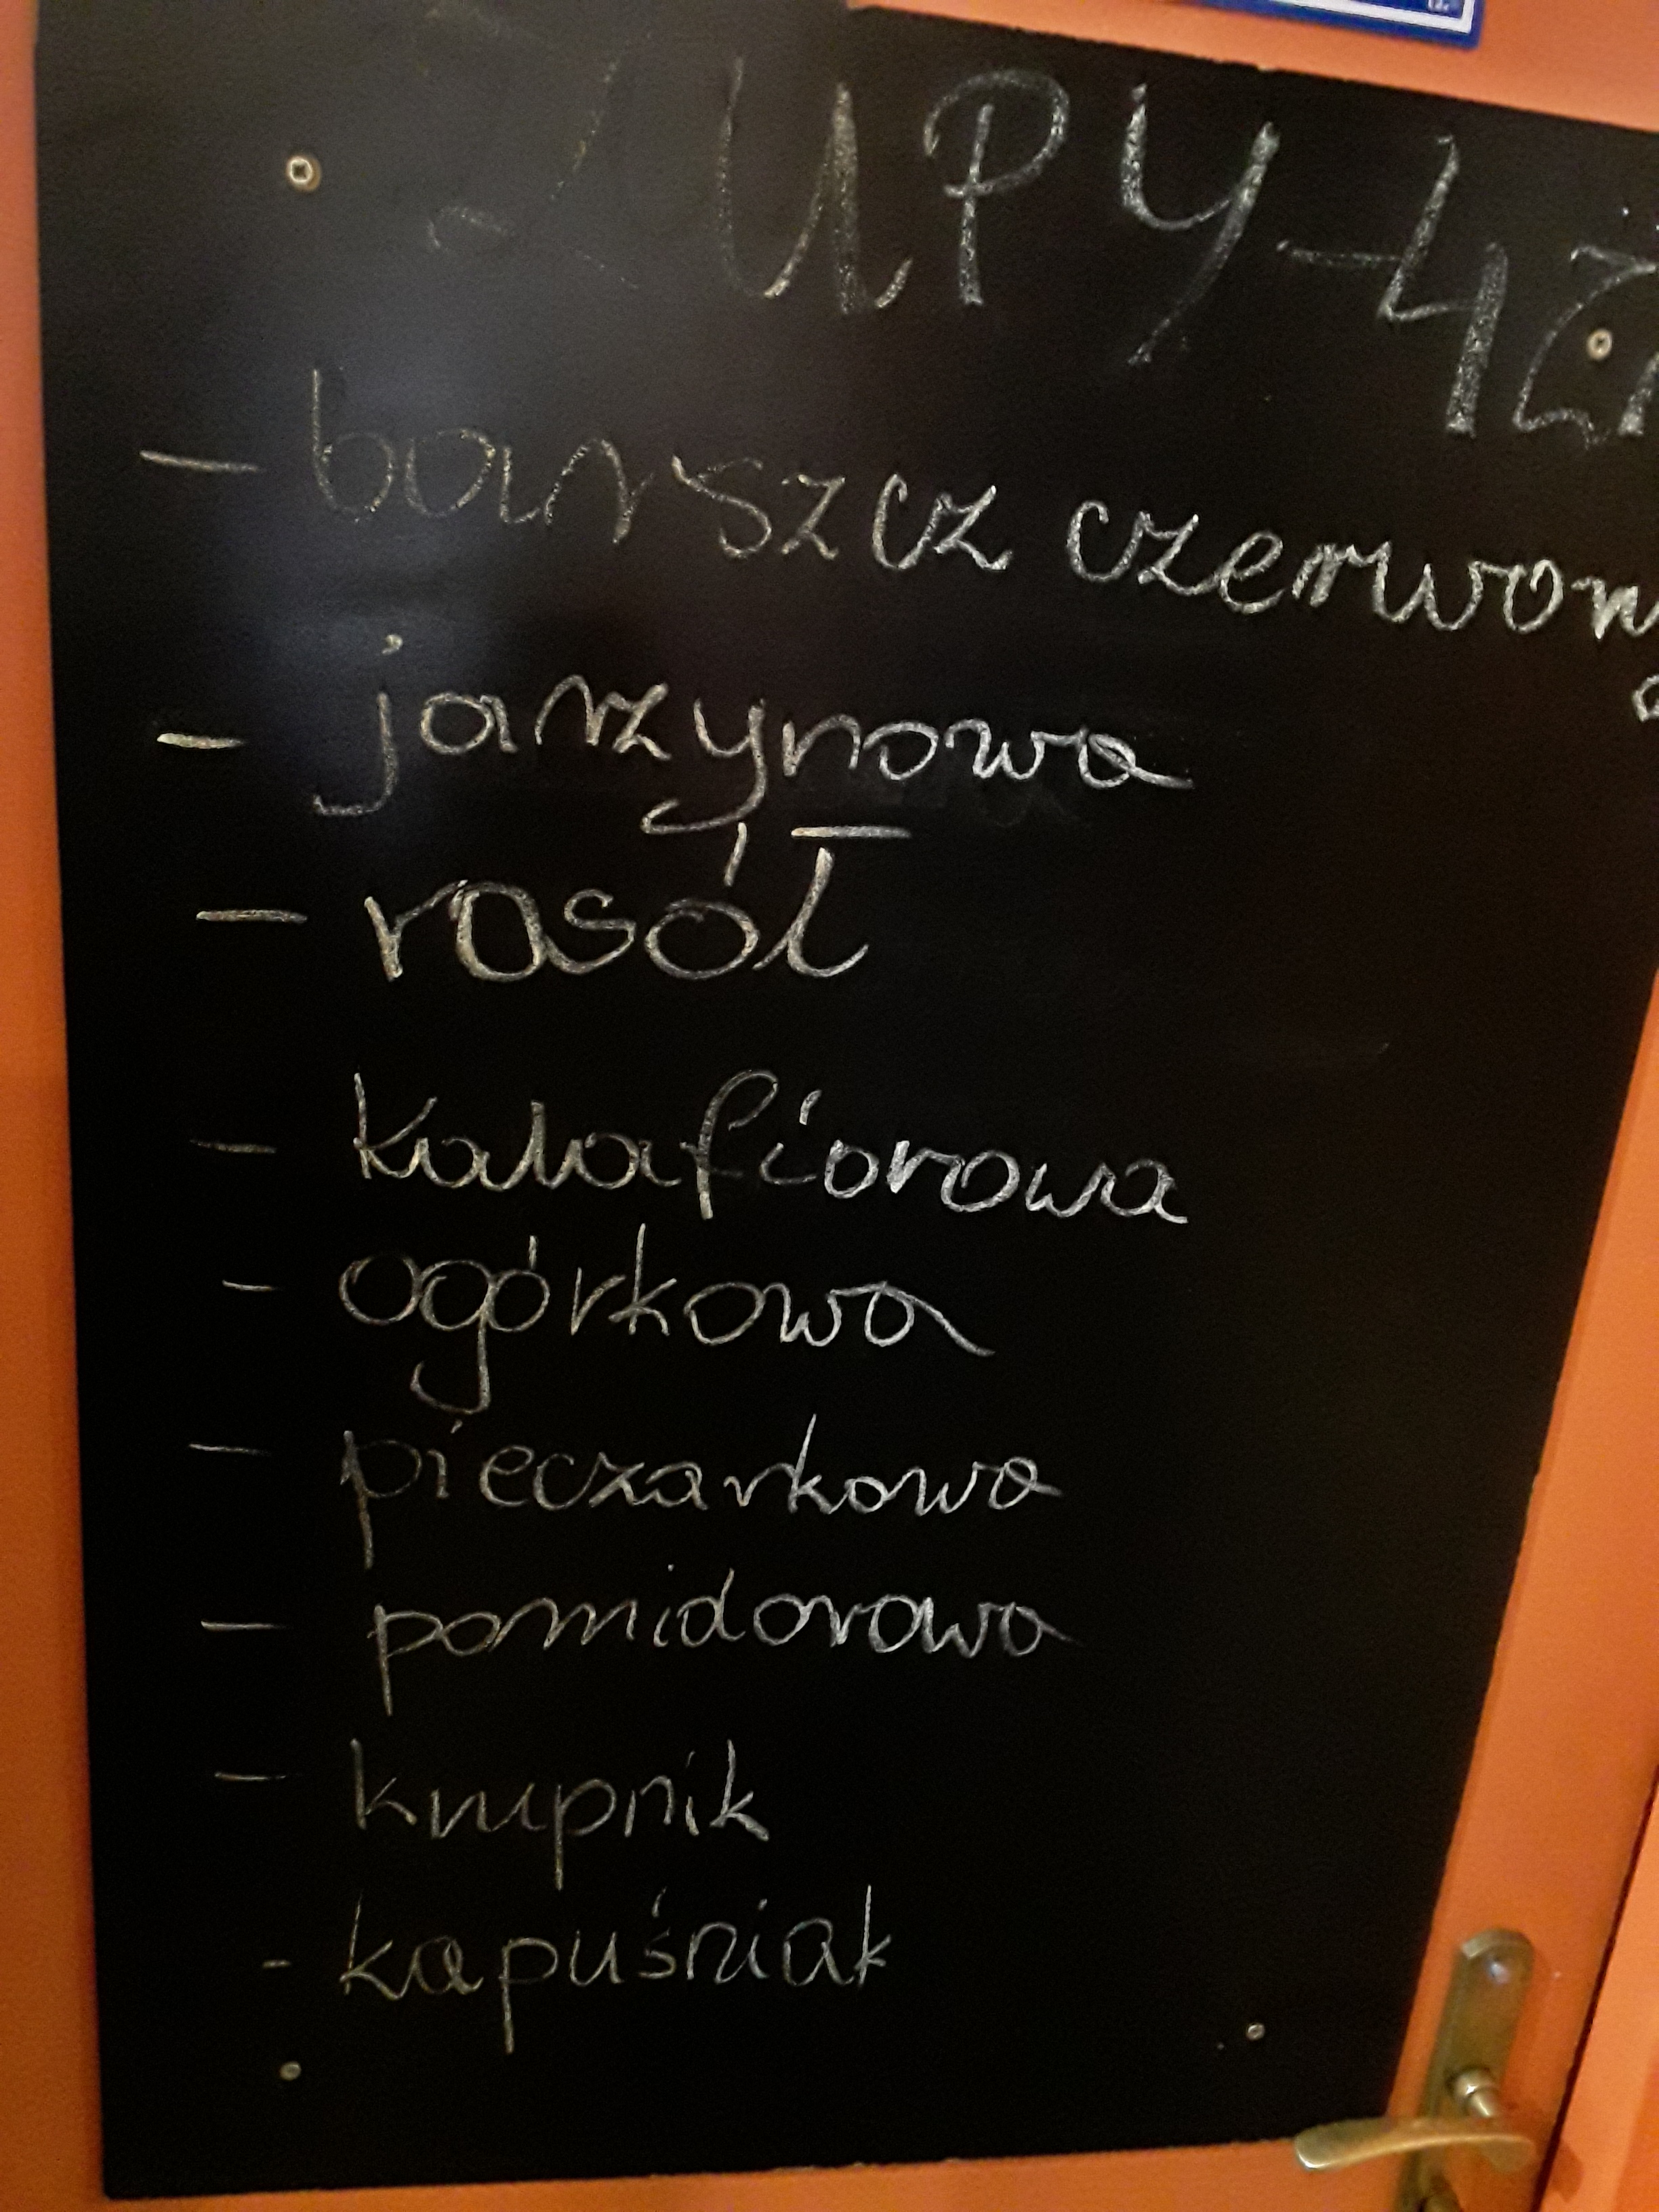 ZUPY - 4 zł
- barszcz czerwony
- jarzynowa
- rosół
- kalafiorowa
- ogórkowa
- pieczarkowa
- pomidorowa
- krupnik
- kapuśniak